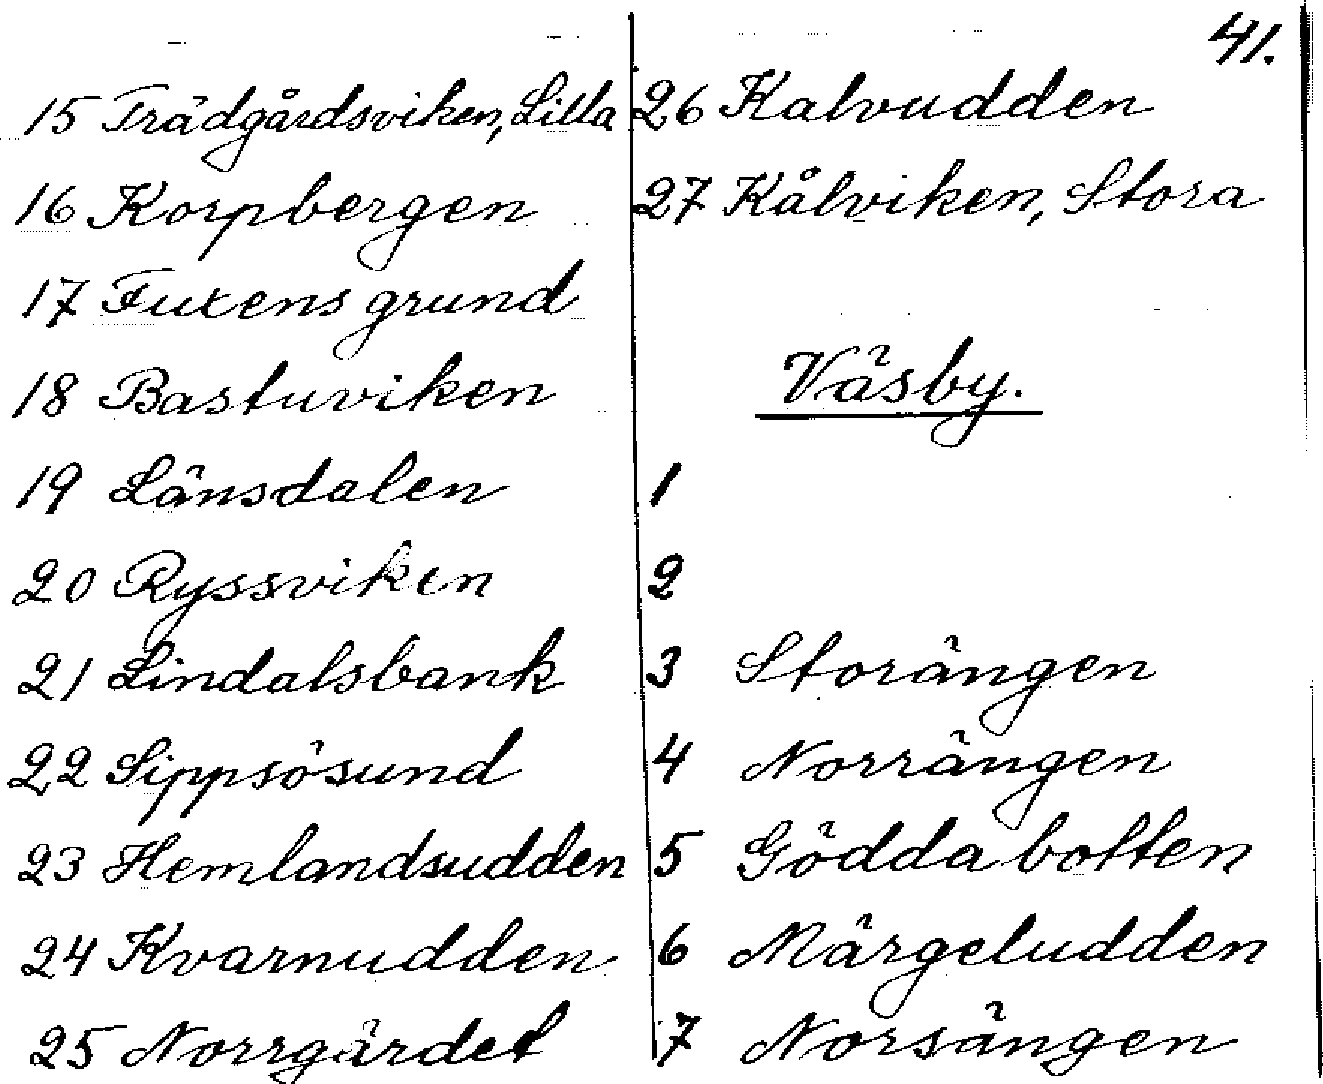 41.
15 Trädgårdsviken, Lilla
16 Korpbergen
17 Fuxens grund
18 Bastuviken
19 Länsdalen
20 Ryssviken
21 Lindalsbank
22 Sippsösund
23 Hemlandsudden
24 Kvarnudden
25 Norrgärdet
26 Kalvudden
27 Kålviken, Stora
Väsby.
1
2
3 Storängen
4 Norrängen
5 Gödda botten
6 Märgeludden
7 Norsängen